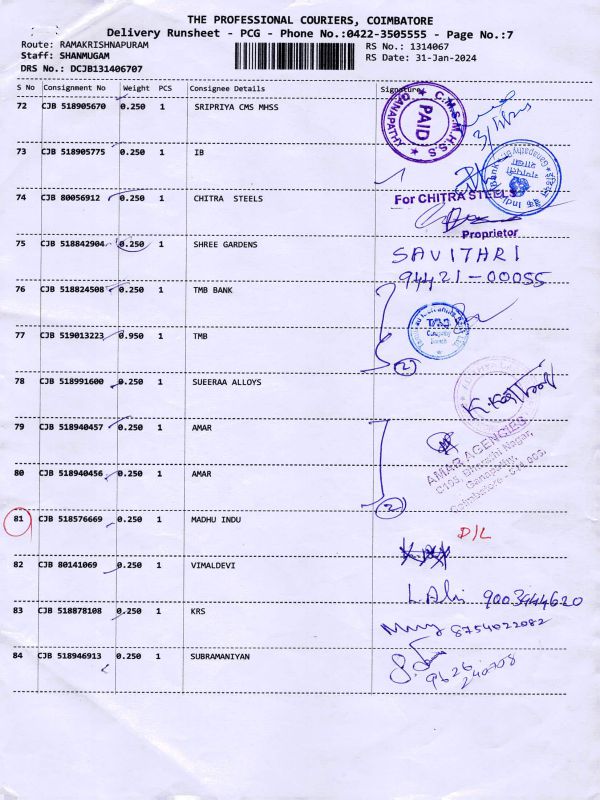 THE PROFESSIONAL COURIERS, COIMBATORE
Delivery Runsheet - PCG - Phone No.:0422-3505555 - Page No.:7
Route: RAMAKRISHNAPURAM
RS No.: 1314067
Staff: SHANMUGAM
RS Date: 31-Jan-2024
DRS No.: DCJB131406707
S No Consignment No Weight PCS Consignee Details Signature
72 CJB 518905670 0.250 1 SRIPRIYA CMS MHSS
C.M.S.M.H.S.S
GANAPATHY
PAID
73 CJB 518905775 0.250 1 IB
74 CJB 80056912 0.250 1 CHITRA STEELS
For CHITRA STEELS
Proprietor
75 CJB 518842904 0.250 1 SHREE GARDENS
SAVITHRI
94421-00055
76 CJB 518824508 0.250 1 TMB BANK
77 CJB 519013223 0.950 1 TMB
(2)
78 CJB 518991600 0.250 1 SUEERAA ALLOYS
79 CJB 518940457 0.250 1 AMAR
AMAR AGENCIES
Bharathi Nagar,
Ganapathy,
Coimbatore - 641 006.
80 CJB 518940456 0.250 1 AMAR
(2)
81 CJB 518576669 0.250 1 MADHU INDU
D/L
82 CJB 80141069 0.250 1 VIMALDEVI
9003944620
83 CJB 518878108 0.250 1 KRS
8754022082
84 CJB 518946913 0.250 1 SUBRAMANIYAN
9626
240708